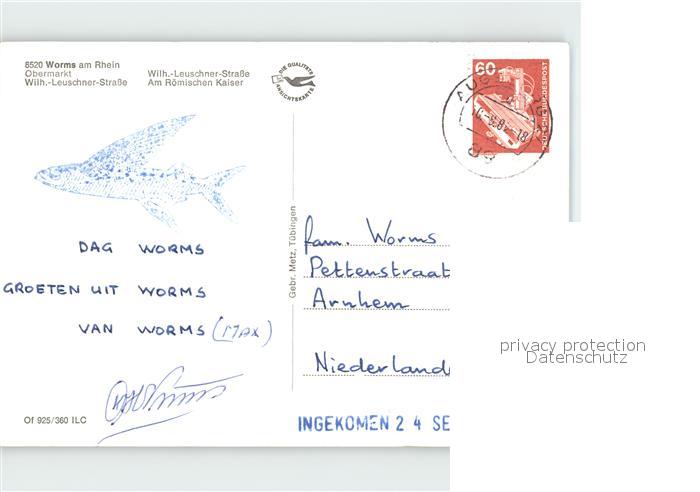 6520 Worms am Rhein
Obermarkt Wilh.-Leuschner-Straße
Wilh.-Leuschner-Straße Am Römischen Kaiser
DIE QUALITÄTS ANSICHTSKARTE
60
DEUTSCHE BUNDESPOST
DAG WORMS
GROETEN UIT WORMS
VAN WORMS (MAX)
Gebr. Metz, Tübingen
fam. Worms
Pettenstraat
Arnhem
Niederland
privacy protection
Datenschutz
Of 925/360 ILC
INGEKOMEN 2 4 SE